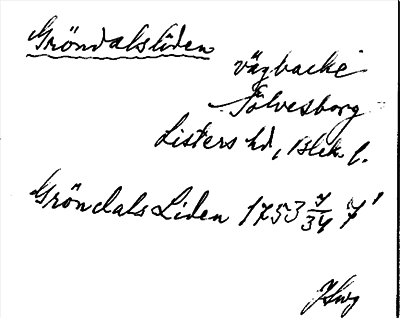 Gröndalsliden
vägbacke
Sölvesborg
Listers hd, Blek. l.
Gröndals Liden 1753 7/34 7